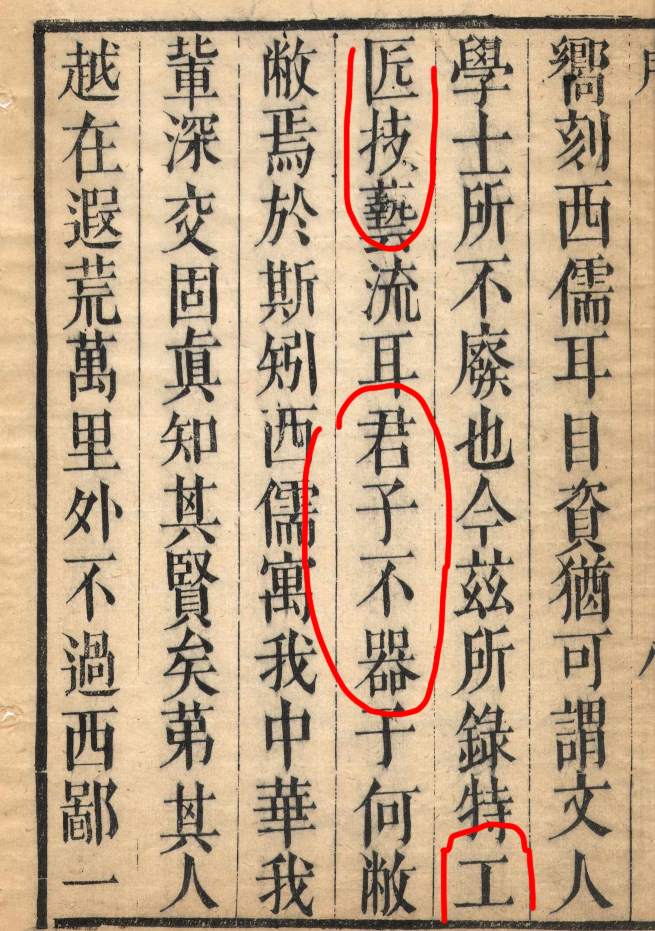 嚮刻西儒耳目資猶可謂文人
學士所不廢也今茲所錄特工
匠技藝流耳君子不器子何敝
敝焉於斯矧西儒寓我中華我
輩深交固眞知其賢矣第其人
越在遐荒萬里外不過西鄙一